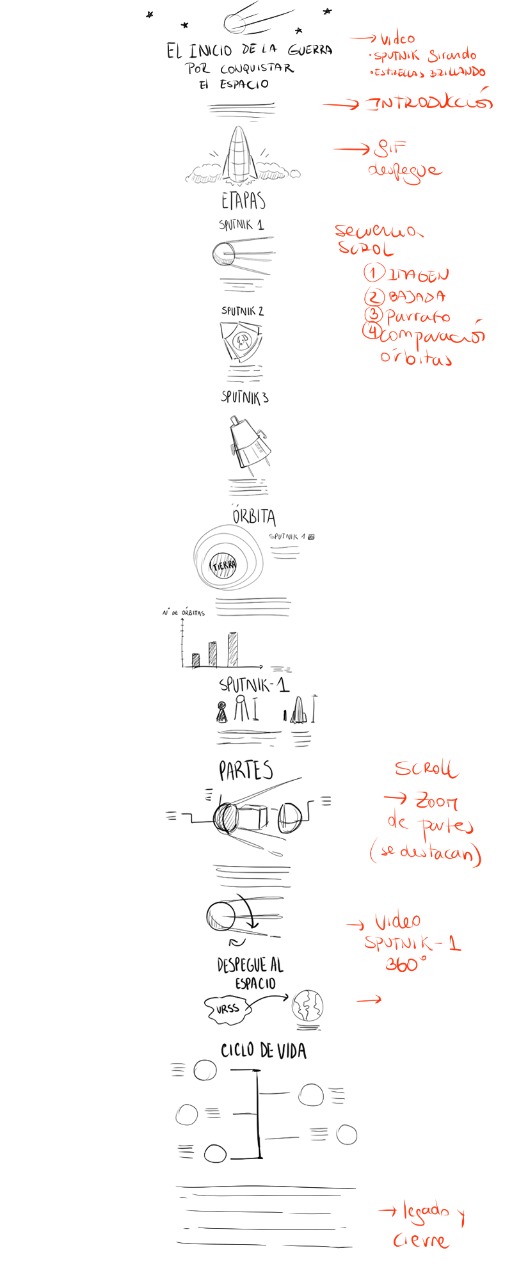 EL INICIO DE LA GUERRA
POR CONQUISTAR
EL ESPACIO
→ Video
• SPUTNIK Girando
• ESTRELLAS BRILLANDO
→ INTRODUCCIÓN
→ GIF
despegue
ETAPAS
SPUTNIK 1
Secuencia
SCROL
1 IMAGEN
2 BAJADA
3 Párrafo
4 comparación
órbitas
SPUTNIK 2
SPUTNIK 3
ÓRBITA
SPUTNIK 1
TIERRA
N° DE ÓRBITAS
SPUTNIK-1
PARTES
SCROLL
→ Zoom
de partes
(se destacan)
→ Video
SPUTNIK-1
360°
DESPEGUE AL
ESPACIO
URSS
→
CICLO DE VIDA
→ legado y
cierre